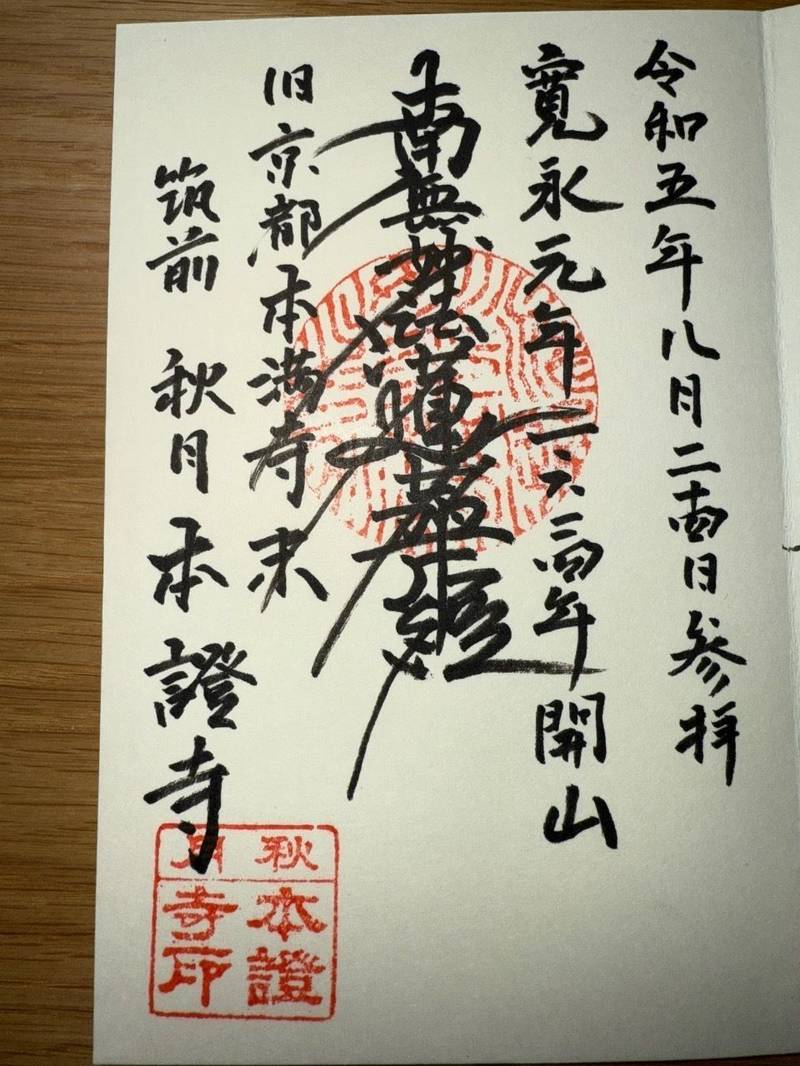 令和五年八月二十四日参拝
寛永元年一六二四年開山
南無妙法蓮華経
旧京都本満寺末
筑前 秋月 本證寺
秋月
本證
寺印